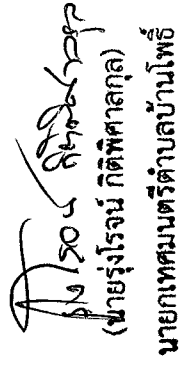 (นายรุ่งโรจน์ กิติพิศาลกุล)
นายกเทศมนตรีตำบลบ้านโพธิ์